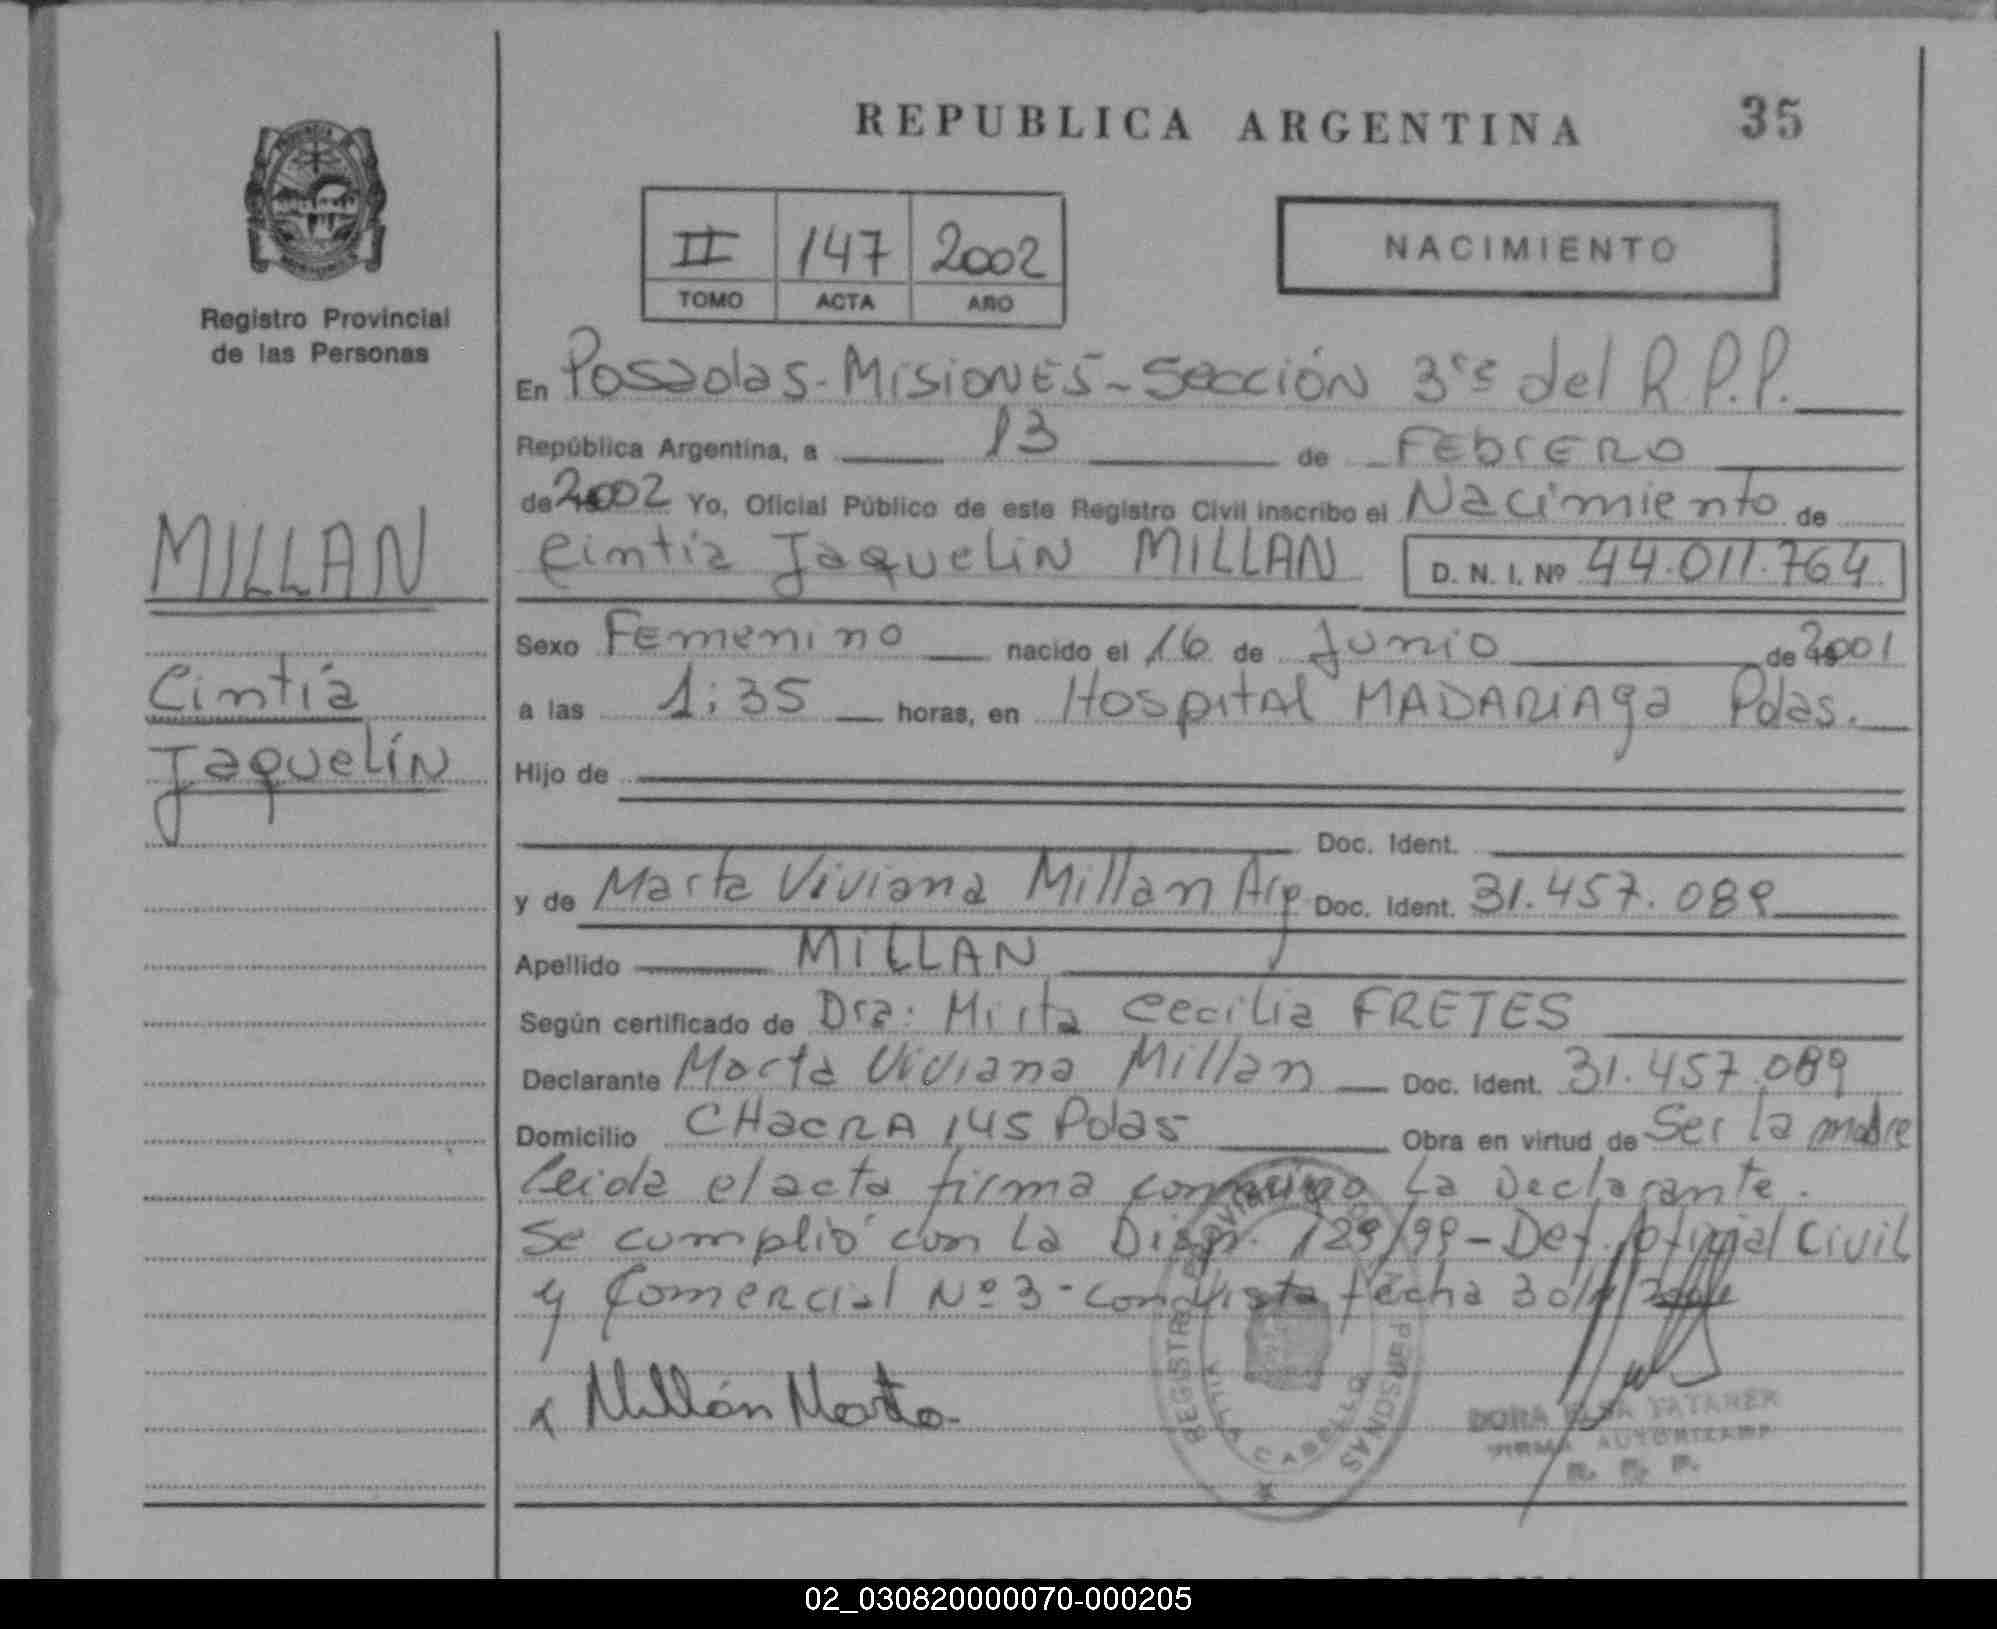 REPUBLICA ARGENTINA 35
II 147 2002
TOMO ACTA AÑO
NACIMIENTO
Registro Provincial
de las Personas
MILLAN
Cintia
Jaquelín
En Posadas - Misiones - Sección 3ra del R.P.P.
República Argentina, a 13 de Febrero
de 2002 Yo, Oficial Público de este Registro Civil inscribo el Nacimiento de
Cintia Jaquelin MILLAN D. N. I. Nº 44.011.764
Sexo Femenino nacido el 16 de Junio de 2001
a las 1:35 horas, en Hospital MADARIAga Pdas.
Hijo de
Doc. Ident.
y de Marta Viviana Millan Arg. Doc. Ident. 31.457.089
Apellido MILLAN
Según certificado de Dra: Mirta Cecilia FRETES
Declarante Marta Viviana Millan Doc. Ident. 31.457.089
Domicilio CHACRA 145 Pdas Obra en virtud de Ser la madre
Leida el acta firma conmigo la Declarante.
Se cumplió con la Disp. 129/99 - Def. Oficial Civil
y Comercial Nº 3 - con vista fecha 30/
x Millán Marta
REGISTRO PERSONAS
VILLA CABELLO
DORA ELSA
FIRMA AUTORIZADA
R. P. P.
02_030820000070-000205